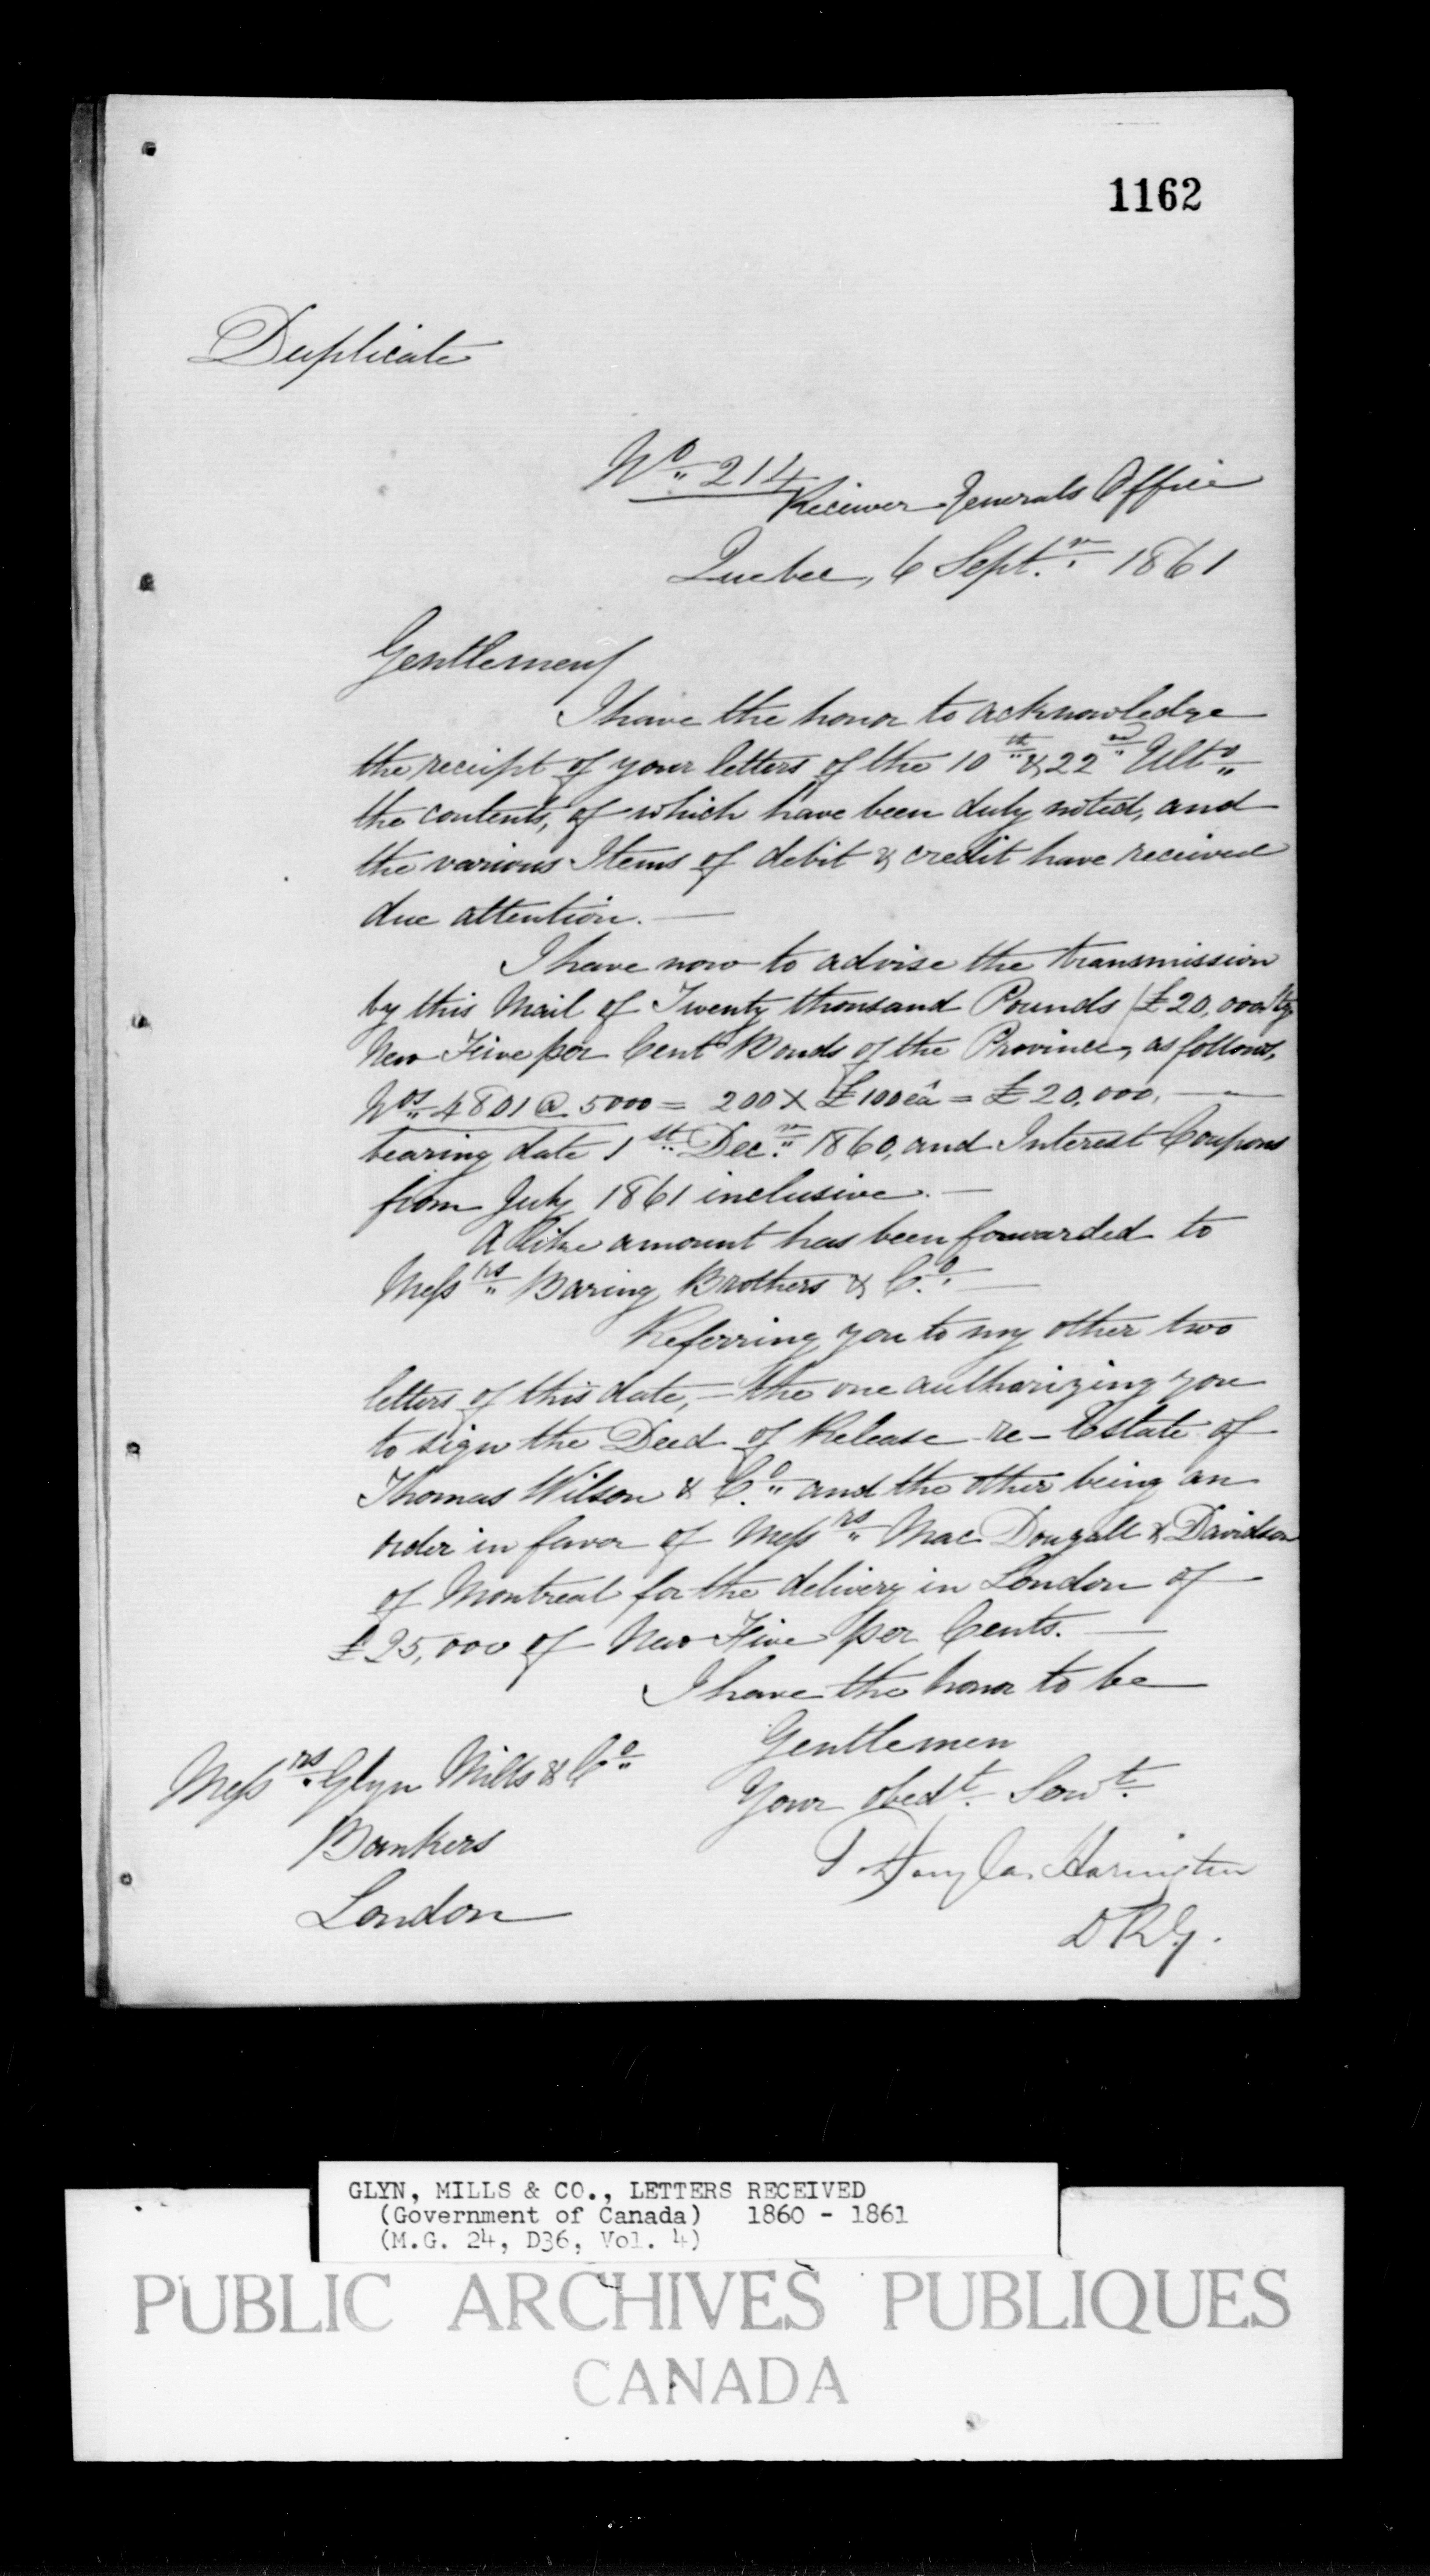 1162
Duplicate
No 214
Receiver Generals Office
Quebec, 6 Septr. 1861
Gentlemen
I have the honor to acknowledge
the receipt of your letters of the 10th & 22nd Ulto
the contents, of which have been duly noted, and
the various Items of debit & credit have received
due attention. —
I have now to advise the transmission
by this Mail of Twenty thousand Pounds (£20,000) Stg
New Five per Cent Bonds of the Province, as follows,
Nos 4801 @ 5000 = 200 X £100 ea = £20,000. —
bearing date 1st Decr. 1860, and Interest Coupons
from July 1861 inclusive. —
A like amount has been forwarded to
Messrs Baring Brothers & Co. —
Referring you to my other two
letters of this date, — the one authorizing you
to sign the Deed of Release re - Estate of
Thomas Wilson & Co. and the other being an
order in favor of Messrs Mac Dougall & Davidson
of Montreal for the delivery in London of
£25,000 of New Five per Cents. —
I have the honor to be
Gentlemen
Your obedt. Servt.
T Douglas Harington
D R G.
Messrs. Glyn Mills & Co
Bankers
London
GLYN, MILLS & CO., LETTERS RECEIVED
(Government of Canada) 1860 - 1861
(M.G. 24, D36, Vol. 4)
PUBLIC ARCHIVES PUBLIQUES
CANADA